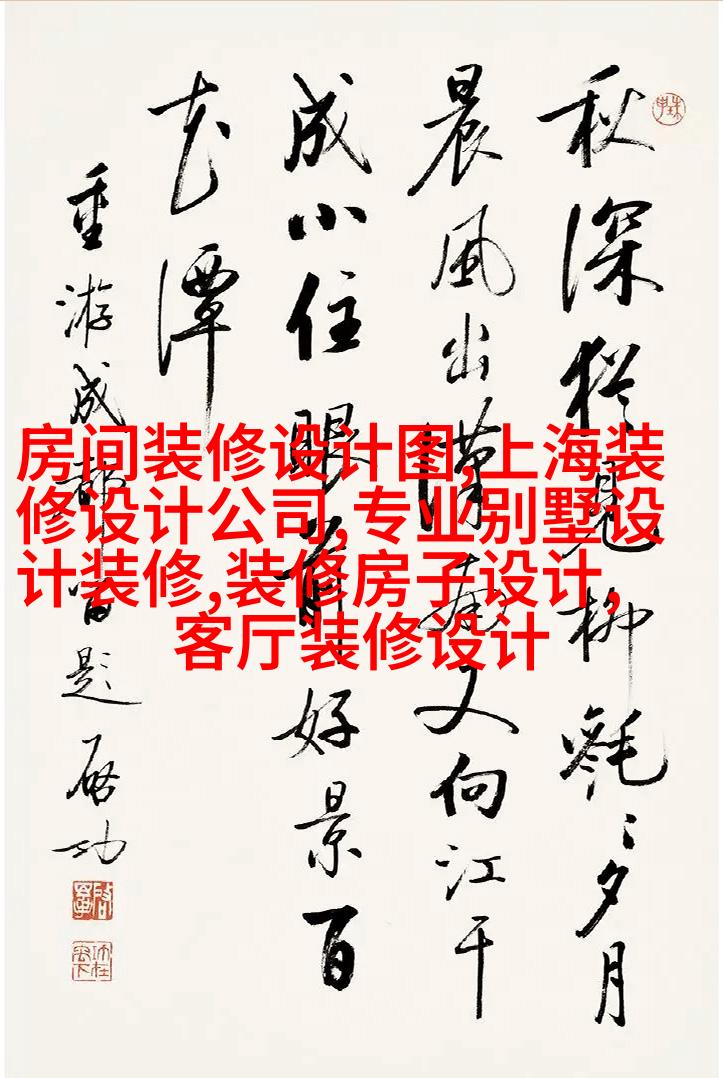 秋深猶覺柳毿〻夕月
晨風出漢南又向江干
成小住眼前好景百
花潭
重游成都留題 啟功
房间装修设计图,上海装
修设计公司,专业别墅设
计装修,装修房子设计,
客厅装修设计